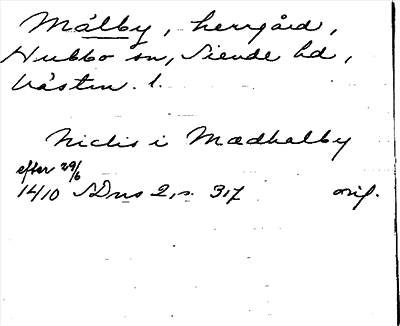 Målby, herrgård,
Hubbo sn, Siende hd,
Västm. l.
Niclis i Mædhalby
efter 29/6
1410 SDns 2, s. 317 orig.